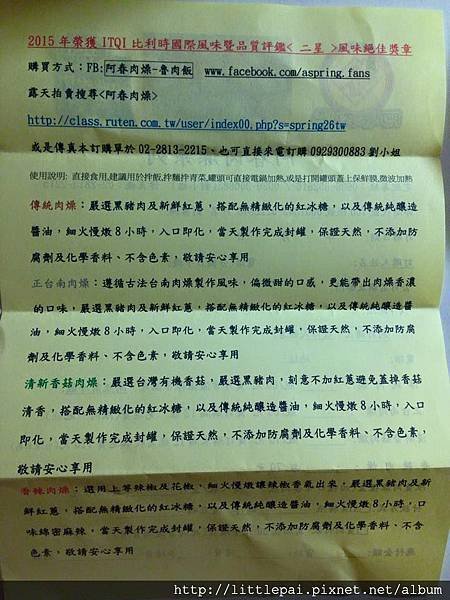 2015年榮獲 ITQI 比利時國際風味暨品質評鑑< 二星 >風味絕佳獎章
購買方式：FB:阿春肉燥-魯肉飯 www.facebook.com/aspring.fans
露天拍賣搜尋<阿春肉燥>
http://class.ruten.com.tw/user/index00.php?s=spring26tw
或是傳真本訂購單於 02-2813-2215、也可直接來電訂購 0929300883 劉小姐
使用說明: 直接食用,建議用於拌飯,拌麵拌青菜,罐頭可直接電鍋加熱,或是打開罐頭蓋上保鮮膜,微波加熱
傳統肉燥：嚴選黑豬肉及新鮮紅蔥，搭配無精緻化的紅冰糖，以及傳統純釀造
醬油，細火慢燉8小時，入口即化，當天製作完成封罐，保證天然，不添加防
腐劑及化學香料、不含色素，敬請安心享用
正台南肉燥：遵循古法台南肉燥製作風味，偏微甜的口感，更能帶出肉燥香濃
的口味，嚴選黑豬肉及新鮮紅蔥，搭配無精緻化的紅冰糖，以及傳統純釀造醬
油，細火慢燉8小時，入口即化，當天製作完成封罐，保證天然，不添加防腐
劑及化學香料、不含色素，敬請安心享用
清新香菇肉燥：嚴選台灣有機香菇，嚴選黑豬肉，刻意不加紅蔥避免蓋掉香菇
清香，搭配無精緻化的紅冰糖，以及傳統純釀造醬油，細火慢燉8小時，入口
即化，當天製作完成封罐，保證天然，不添加防腐劑及化學香料、不含色素，
敬請安心享用
香辣肉燥：選用上等辣椒及花椒，細火慢燉讓辣椒香氣出來，嚴選黑豬肉及新
鮮紅蔥，搭配無精緻化的紅冰糖，以及傳統純釀造醬油，細火慢燉8小時，口
味綿密麻辣，當天製作完成封罐，保證天然，不添加防腐劑及化學香料、不含
色素，敬請安心享用
http://littlepai.pixnet.net/album